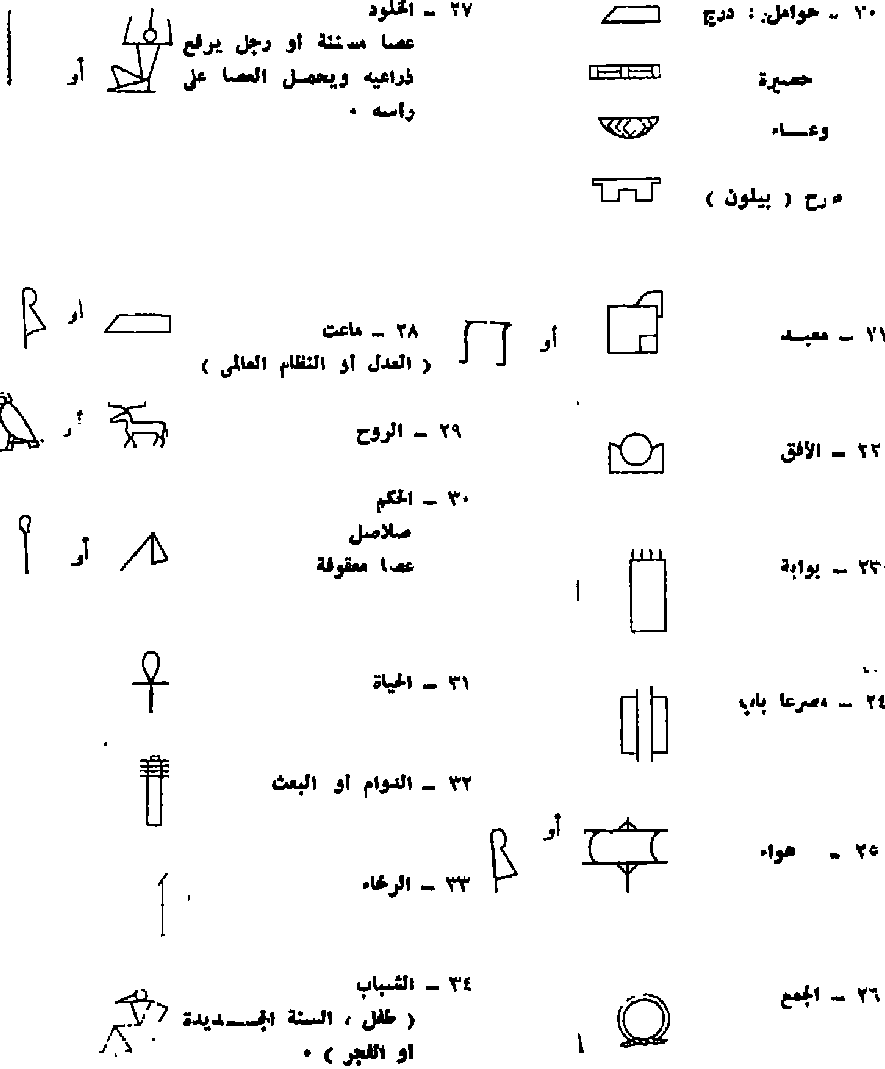 ٢٠ ـ حوامل : درج
حصيرة
وعـــاء
صرح ( بيلون )
٢١ ـ معبـد
أو
٢٢ ـ الأفق
٢٣ ـ بوابة
٢٤ ـ مصرعا باب
٢٥ ـ هواء
أو
٢٦ ـ الجمع
٢٧ ـ الخلود
عصا مسننة أو رجل يرفع
ذراعيه ويحمـل العصا على
رأسه ٠
أو
٢٨ ـ ماعت
( العدل أو النظام العالمى )
أو
٢٩ ـ الروح
أو
٣٠ ـ الحكم
صلاصل
عصا معقوفة
أو
٣١ ـ الحياة
٣٢ ـ الدوام أو البعث
٣٣ ـ الرخاء
٣٤ ـ الشباب
( طفل ، السنة الجـــديدة
او الفجر ) ٠